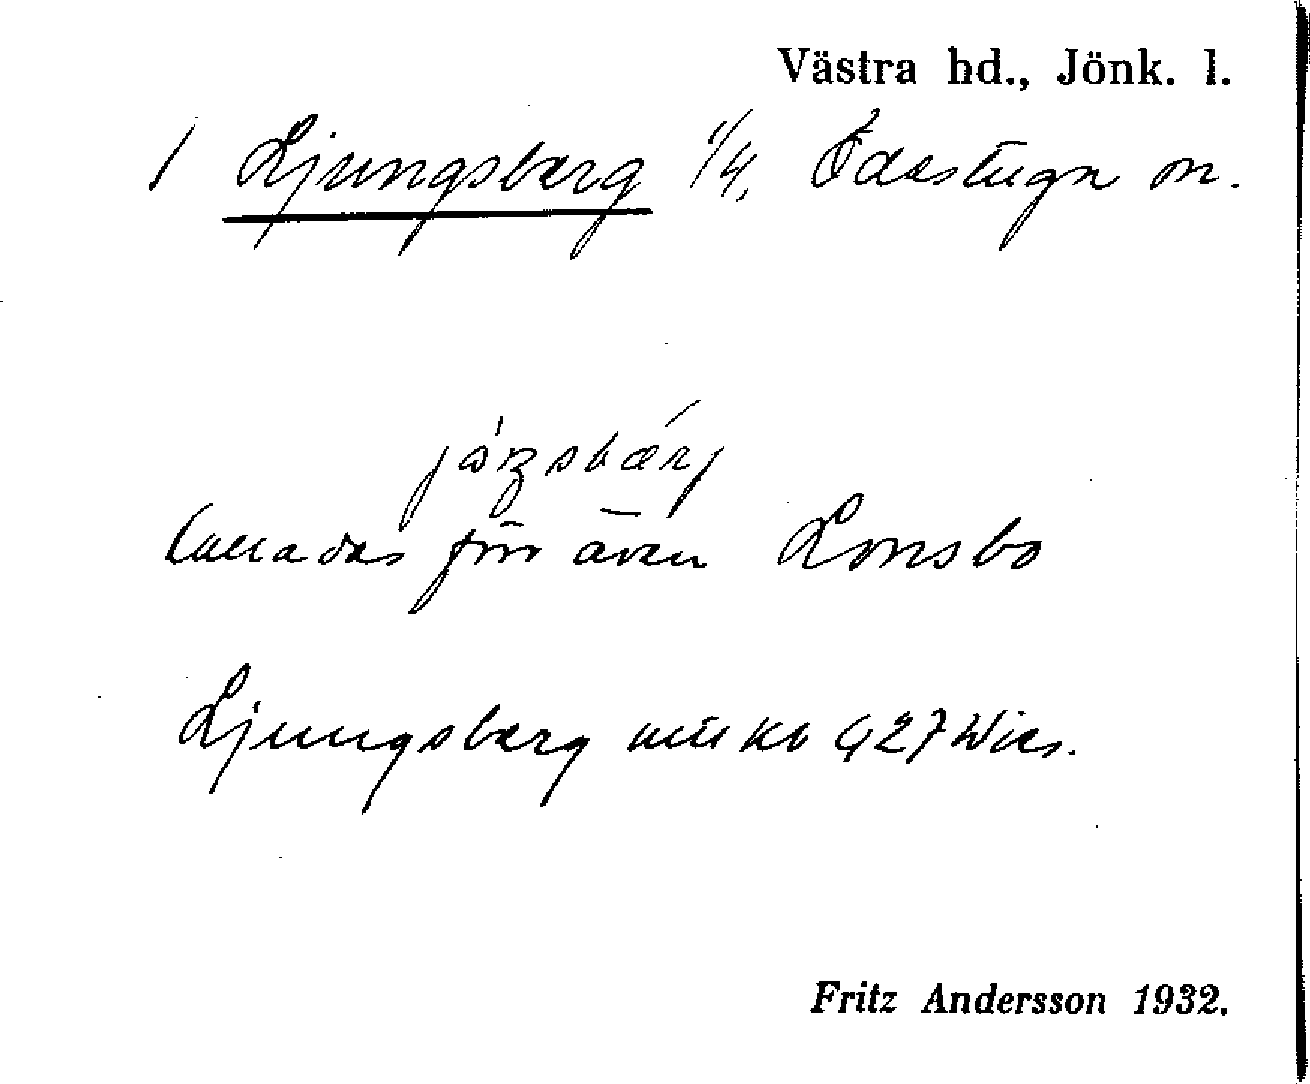 Västra hd., Jönk. l.
1 Ljungsberg 1/4, Ödestugu sn.
kallades förr även Lonsbo
Ljungsberg Wies.
Fritz Andersson 1932.